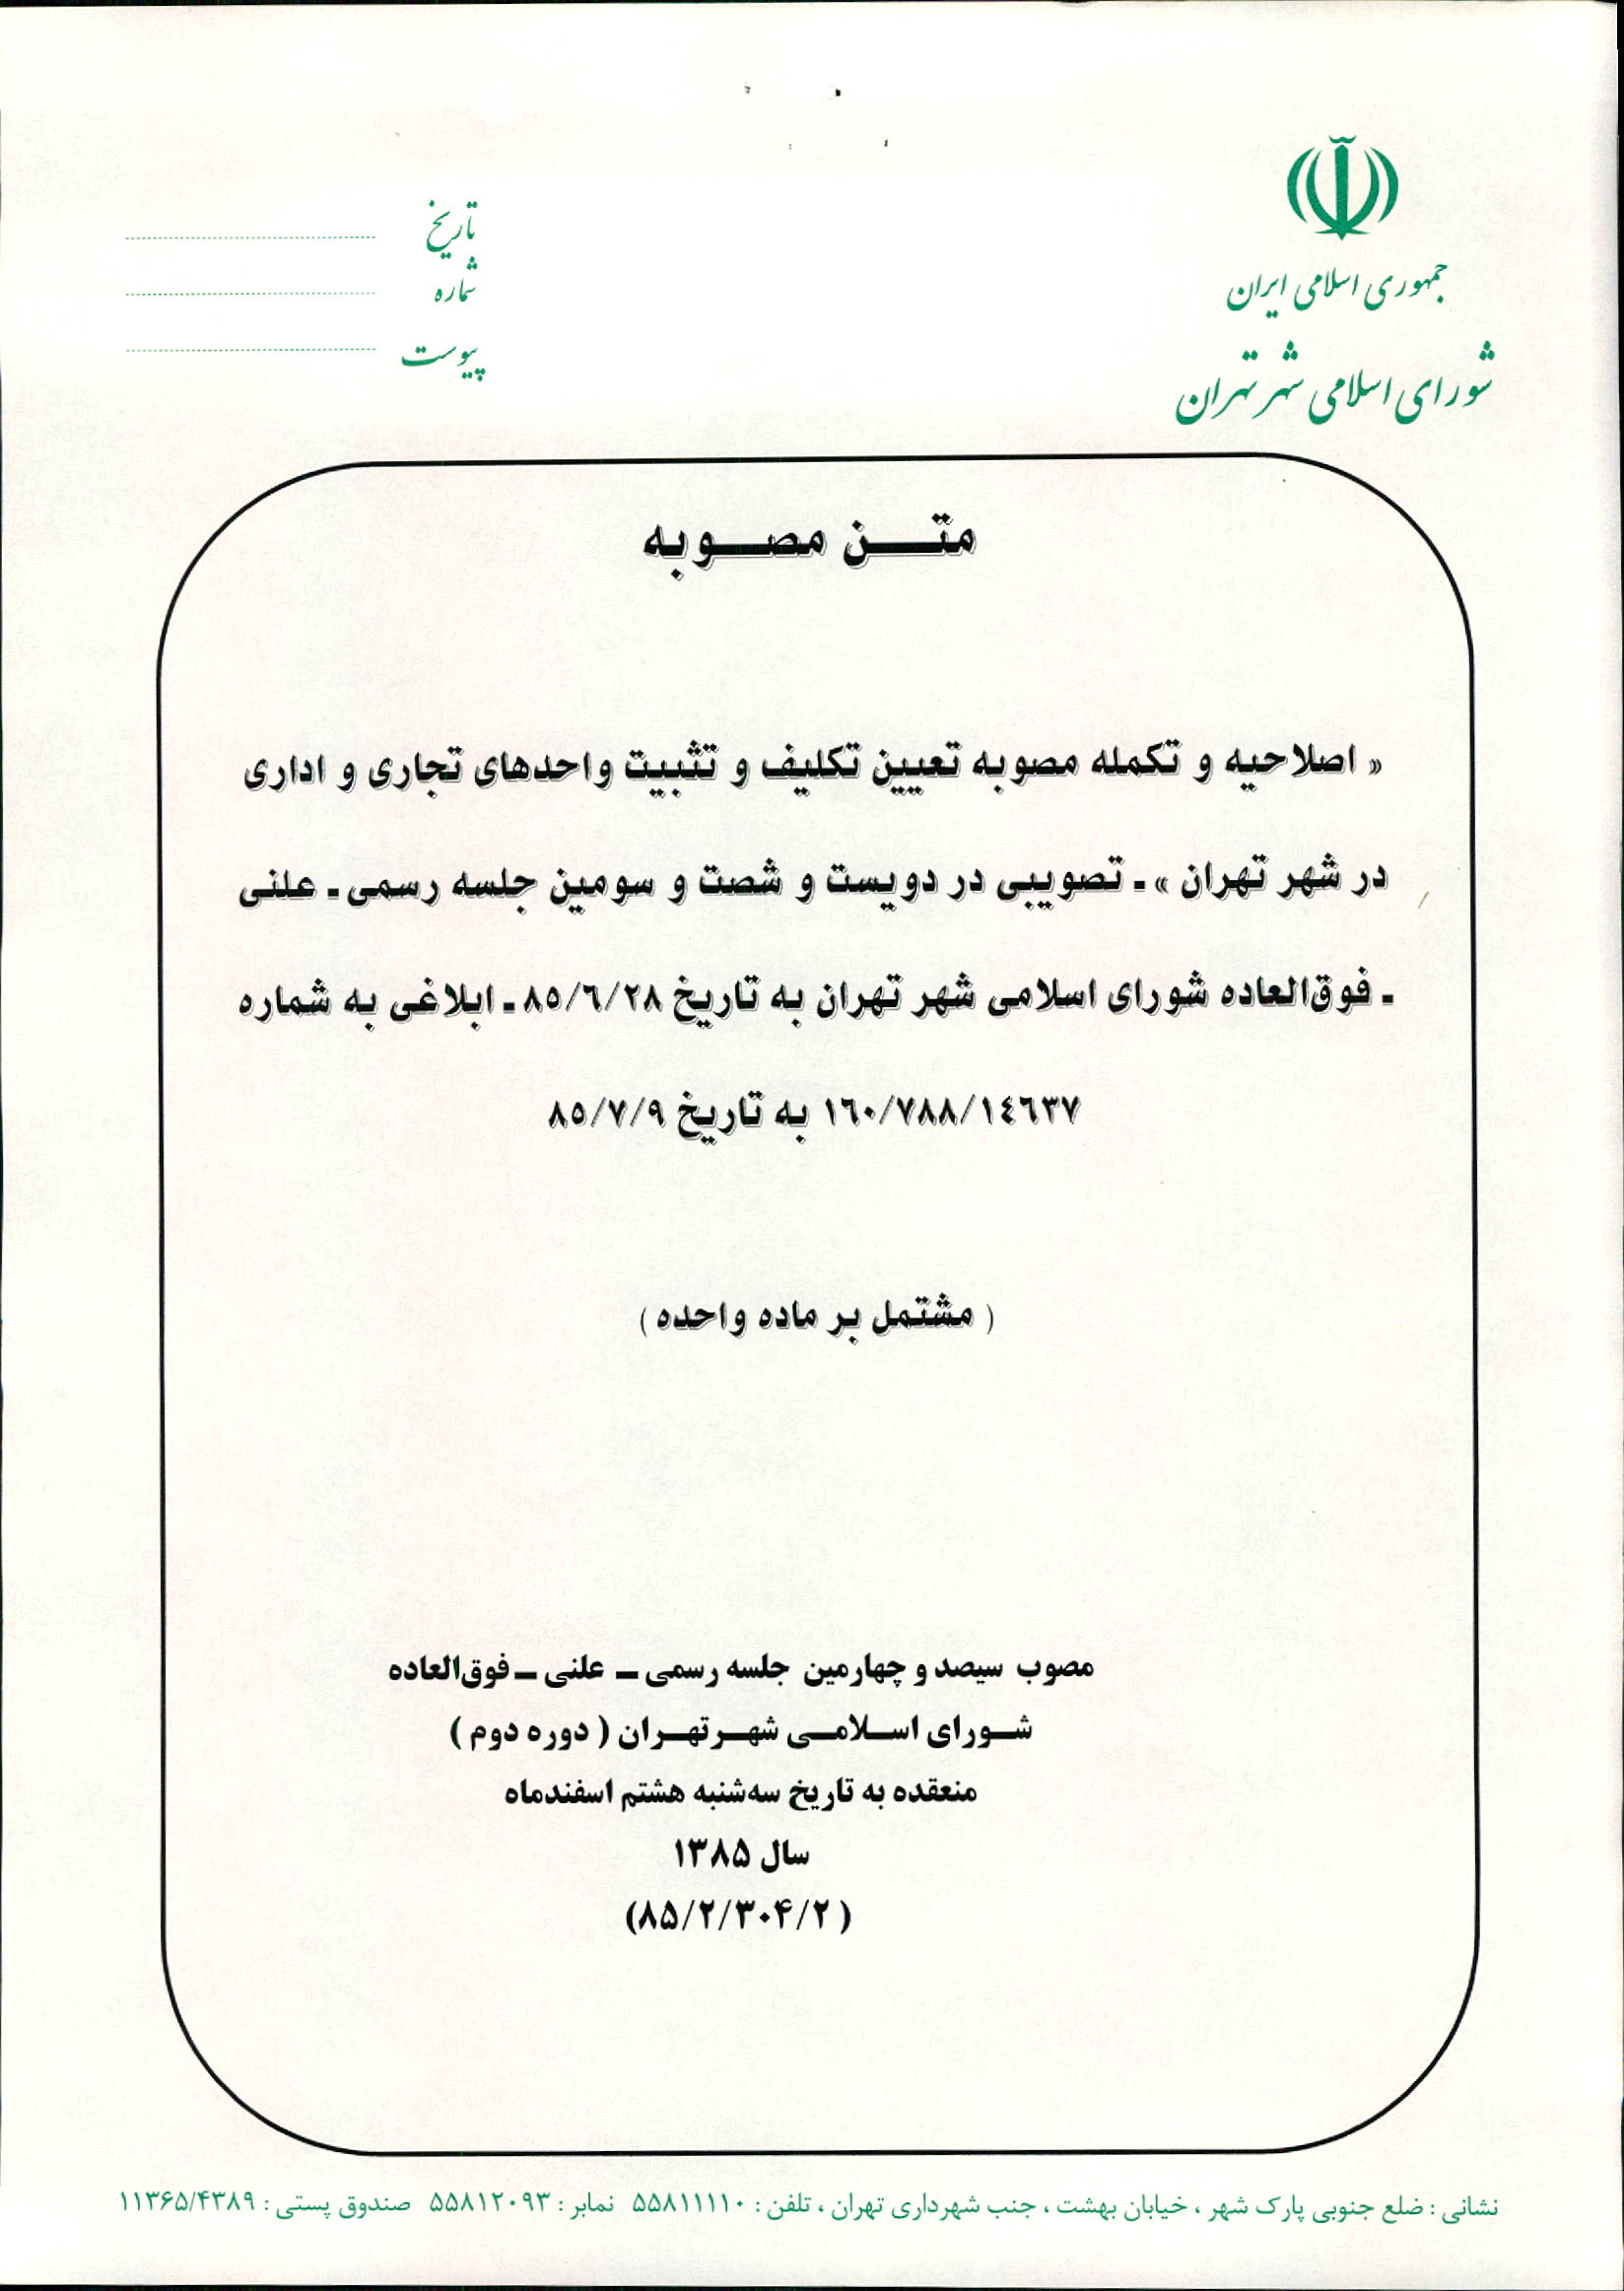 جمهوری اسلامی ایران
شورای اسلامی شهر تهران
تاریخ
شماره
پیوست
متن مصوبه
« اصلاحیه و تکمله مصوبه تعیین تکلیف و تثبیت واحدهای تجاری و اداری
در شهر تهران » ـ تصویبی در دویست و شصت و سومین جلسه رسمی ـ علنی
ـ فوق‌العاده شورای اسلامی شهر تهران به تاریخ ۸۵/۶/۲۸ ـ ابلاغی به شماره
۱۶۰/۷۸۸/۱۴۶۳۷ به تاریخ ۸۵/۷/۹
( مشتمل بر ماده واحده )
مصوب سیصد و چهارمین جلسه رسمی ــ علنی ــ فوق‌العاده
شورای اسلامی شهر تهران ( دوره دوم )
منعقده به تاریخ سه‌شنبه هشتم اسفندماه
سال ۱۳۸۵
(۸۵/۲/۳۰۴/۲ )
نشانی : ضلع جنوبی پارک شهر ، خیابان بهشت ، جنب شهرداری تهران ، تلفن : ۵۵۸۱۱۱۱۰ نمابر : ۵۵۸۱۲۰۹۳ صندوق پستی : ۱۱۳۶۵/۴۳۸۹